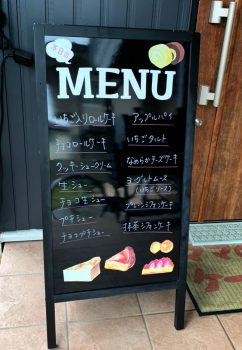 本日の
MENU
いちご入りロールケーキ
チョコロールケーキ
クッキーシュークリーム
生シュー
チョコ生シュー
プチシュー
チョコプチシュー
アップルパイ
いちごタルト
なめらかチーズケーキ
ヨーグルトムース
(いちごソース)
プレーンシフォンケーキ
抹茶シフォンケーキ